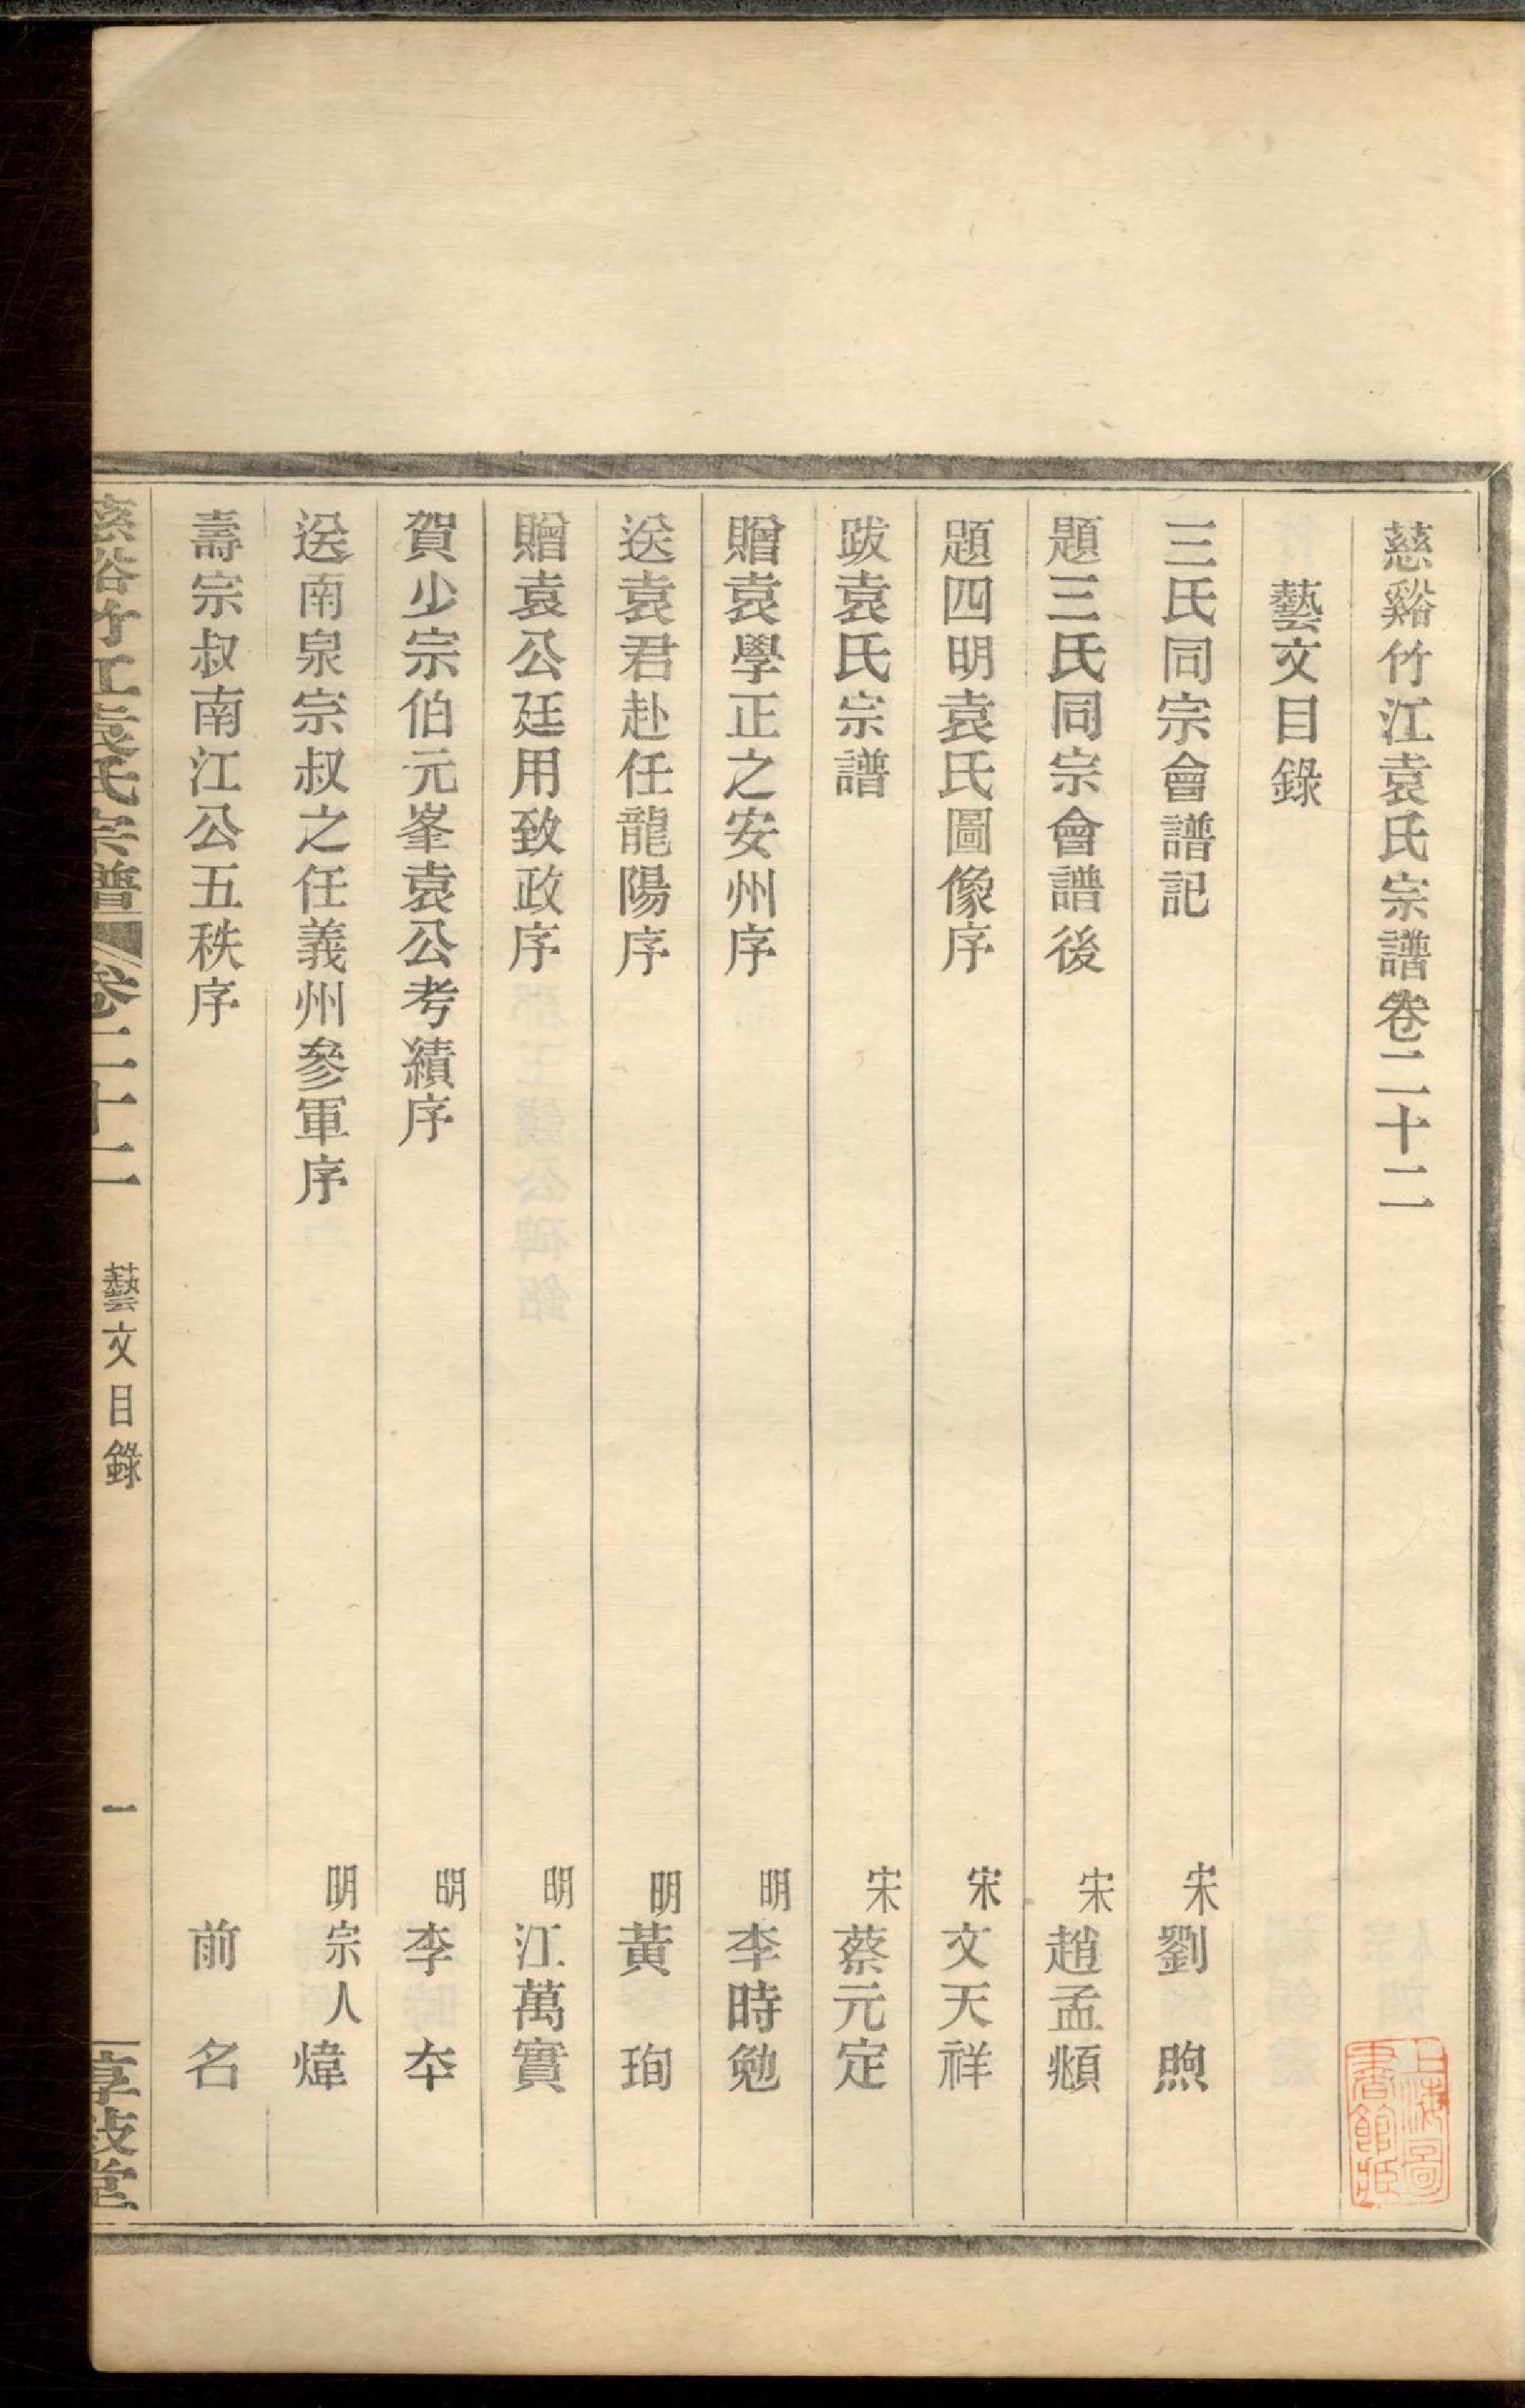 慈谿竹江袁氏宗譜卷二十二
藝文目錄
三氏同宗會譜記 宋 劉煦
題三氏同宗會譜後 宋 趙孟頫
題四明袁氏圖像序 宋 文天祥
跋袁氏宗譜 宋 蔡元定
贈袁學正之安州序 明 李時勉
送袁君赴任龍陽序 明 黃珣
贈袁公廷用致政序 明 江萬實
賀少宗伯元峯袁公考績序 明 李本
送南泉宗叔之任義州參軍序 明宗人 煒
壽宗叔南江公五秩序 前名
慈谿竹江袁氏宗譜 卷二十二 藝文目錄 一
上海圖書館藏